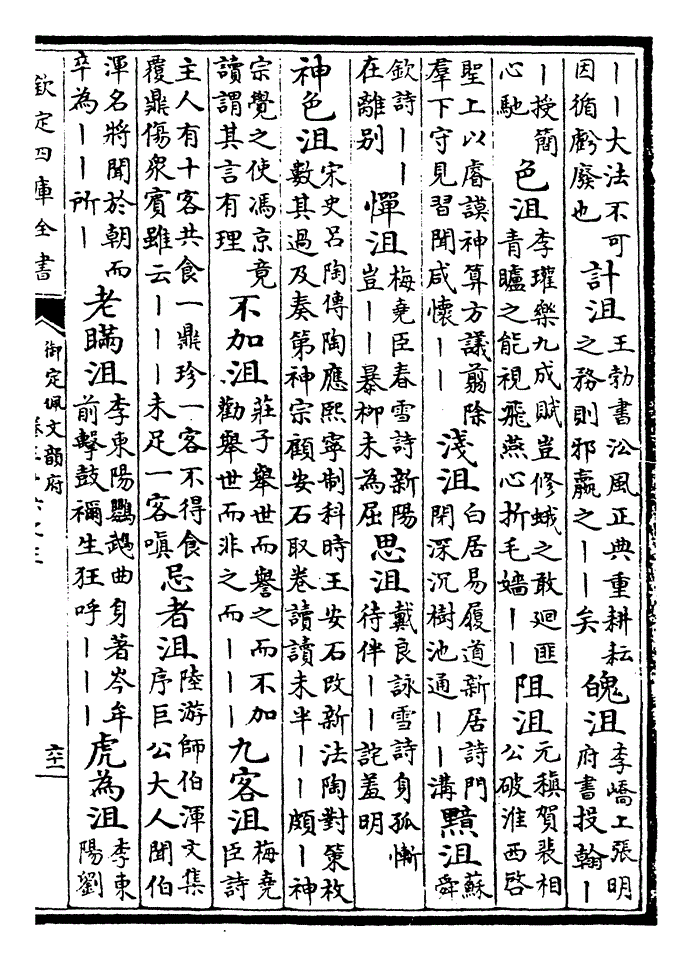 ｜｜大法不可
因循虧廢也
計沮
王勃書㳂風正典重耕耘
之務則邪贏之｜｜矣
媿沮
李嶠上張明
府書投翰｜
｜授簡
心馳
色沮
李瓘樂九成賦豈修蛾之敢廻匪
青矑之能視飛燕心折毛嬙｜｜
阻沮
元稹賀裴相
公破淮西啓
聖上以睿謨神算方議翦除
羣下守見習聞咸懷｜｜
淺沮
白居易履道新居詩門
閉深沉樹池通｜｜溝
黯沮
蘇
舜
欽詩｜｜
在離别
憚沮
梅堯臣春雪詩新陽
豈｜｜暴柳未為屈
思沮
戴良詠雪詩身孤慚
待伴｜｜詫羞明
神色沮
宋史呂陶傳陶應熙寧制科時王安石改新法陶對策枚
數其過及奏第神宗顧安石取卷讀讀未半｜｜頗｜神
宗覺之使馮京竟
讀謂其言有理
不加沮
莊子舉世而譽之而不加
勸舉世而非之而｜｜｜
九客沮
梅堯
臣詩
主人有十客共食一鼎珍一客不得食
覆鼎傷衆賓雖云｜｜｜未足一客嗔
忌者沮
陸游師伯渾文集
序巨公大人聞伯
渾名將聞於朝而
卒為｜｜所｜
老瞞沮
李東陽鸚鵡曲身著岑牟
前擊鼓禰生狂呼｜｜｜
虎為沮
李東
陽劉
欽定四庫全書
御定佩文韻府